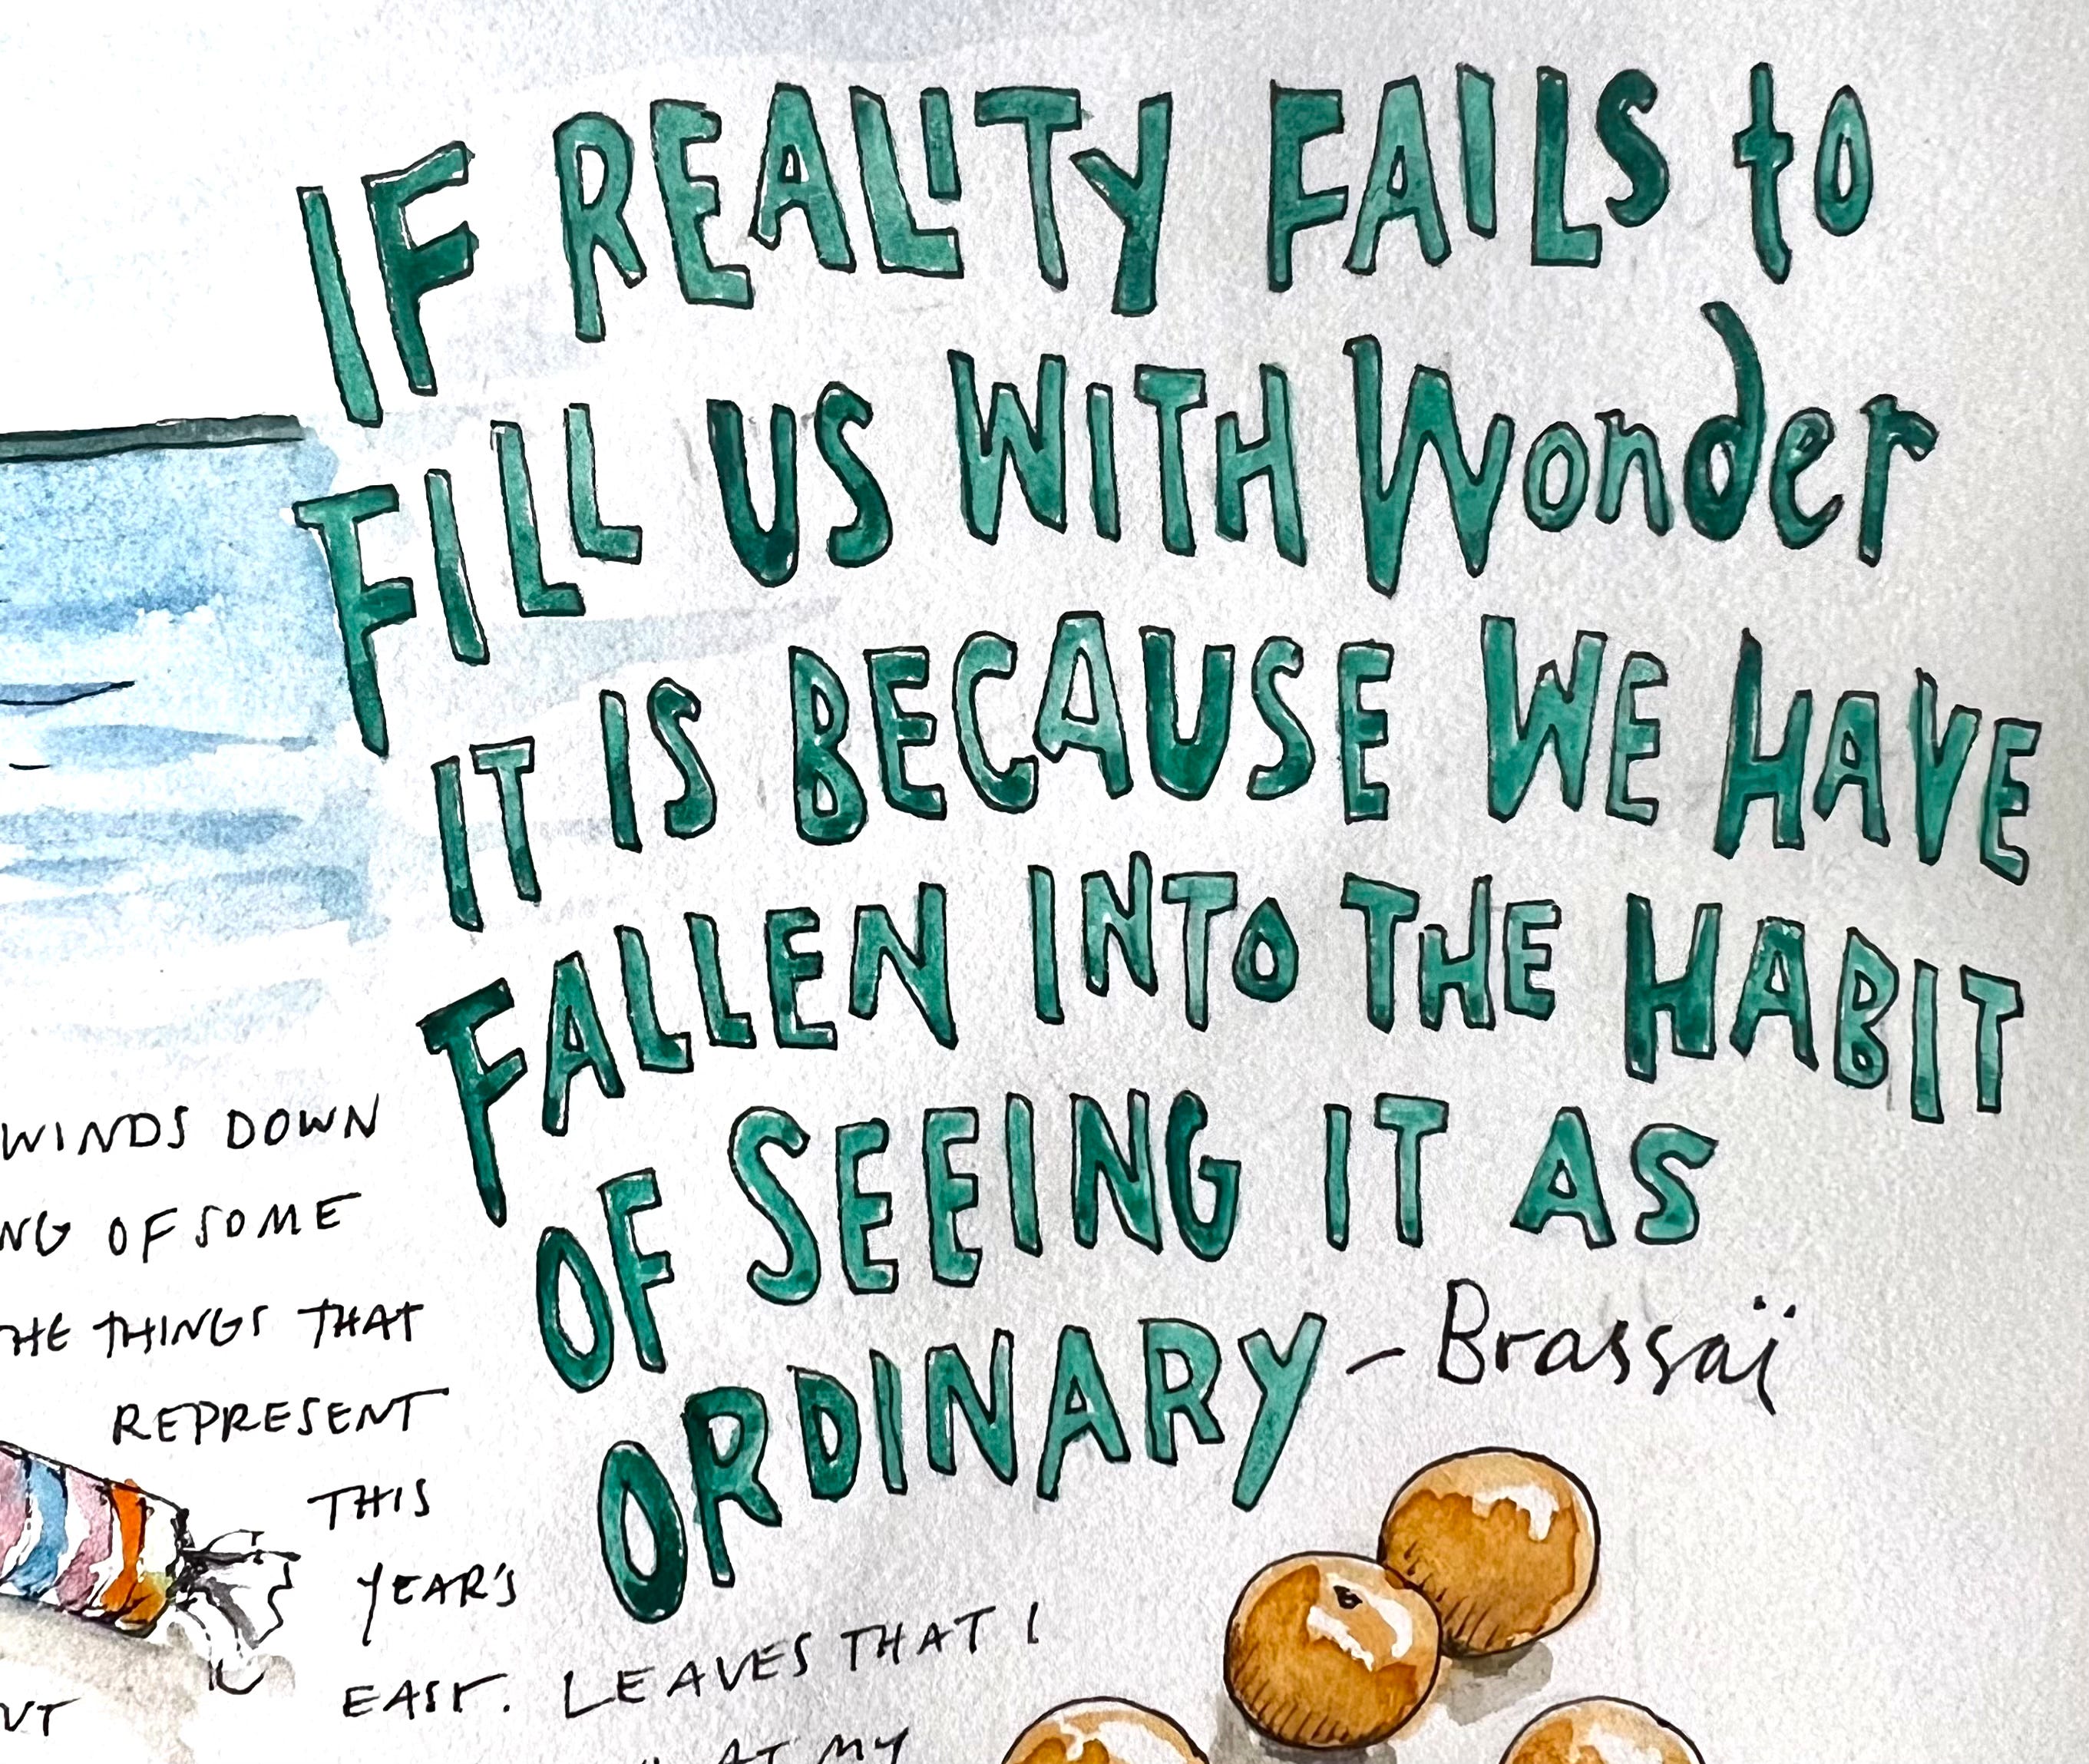 IF REALITY FAILS to
FILL US WITH Wonder
IT IS BECAUSE WE HAVE
FALLEN INTO THE HABIT
OF SEEING IT AS
ORDINARY – Brassaï
WINDS DOWN
OF SOME
THINGS THAT
REPRESENT
THIS
YEAR'S
EAST. LEAVES THAT I
AT MY